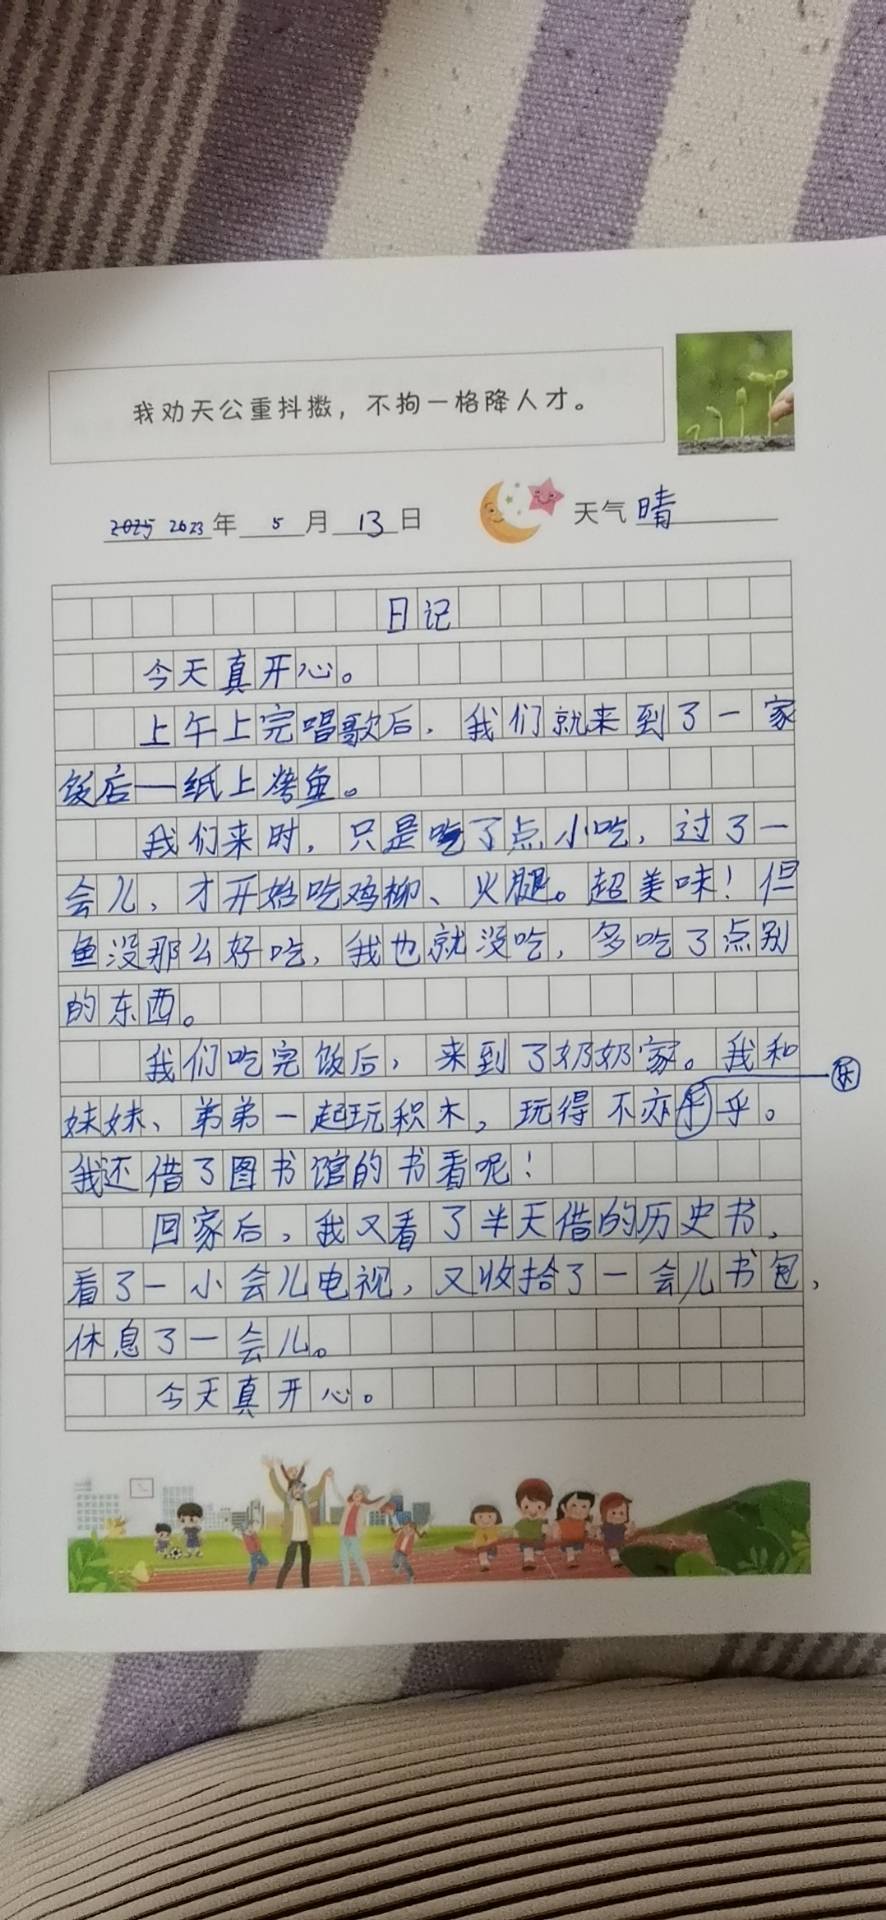 我劝天公重抖擞，不拘一格降人才。
2025 2023年 5 月 13 日 天气 晴
日记
今天真开心。
上午上完唱歌后，我们就来到了一家
饭店—纸上烤鱼。
我们来时，只是吃了点小吃，过了一
会儿，才开始吃鸡柳、火腿。超美味！但
鱼没那么好吃，我也就没吃，多吃了点别
的东西。
我们吃完饭后，来到了奶奶家。我和
妹妹、弟弟一起玩积木，玩得不亦乐乎。
我还借了图书馆的书看呢！
回家后，我又看了半天借的历史书，
看了一小会儿电视，又收拾了一会儿书包，
休息了一会儿。
今天真开心。